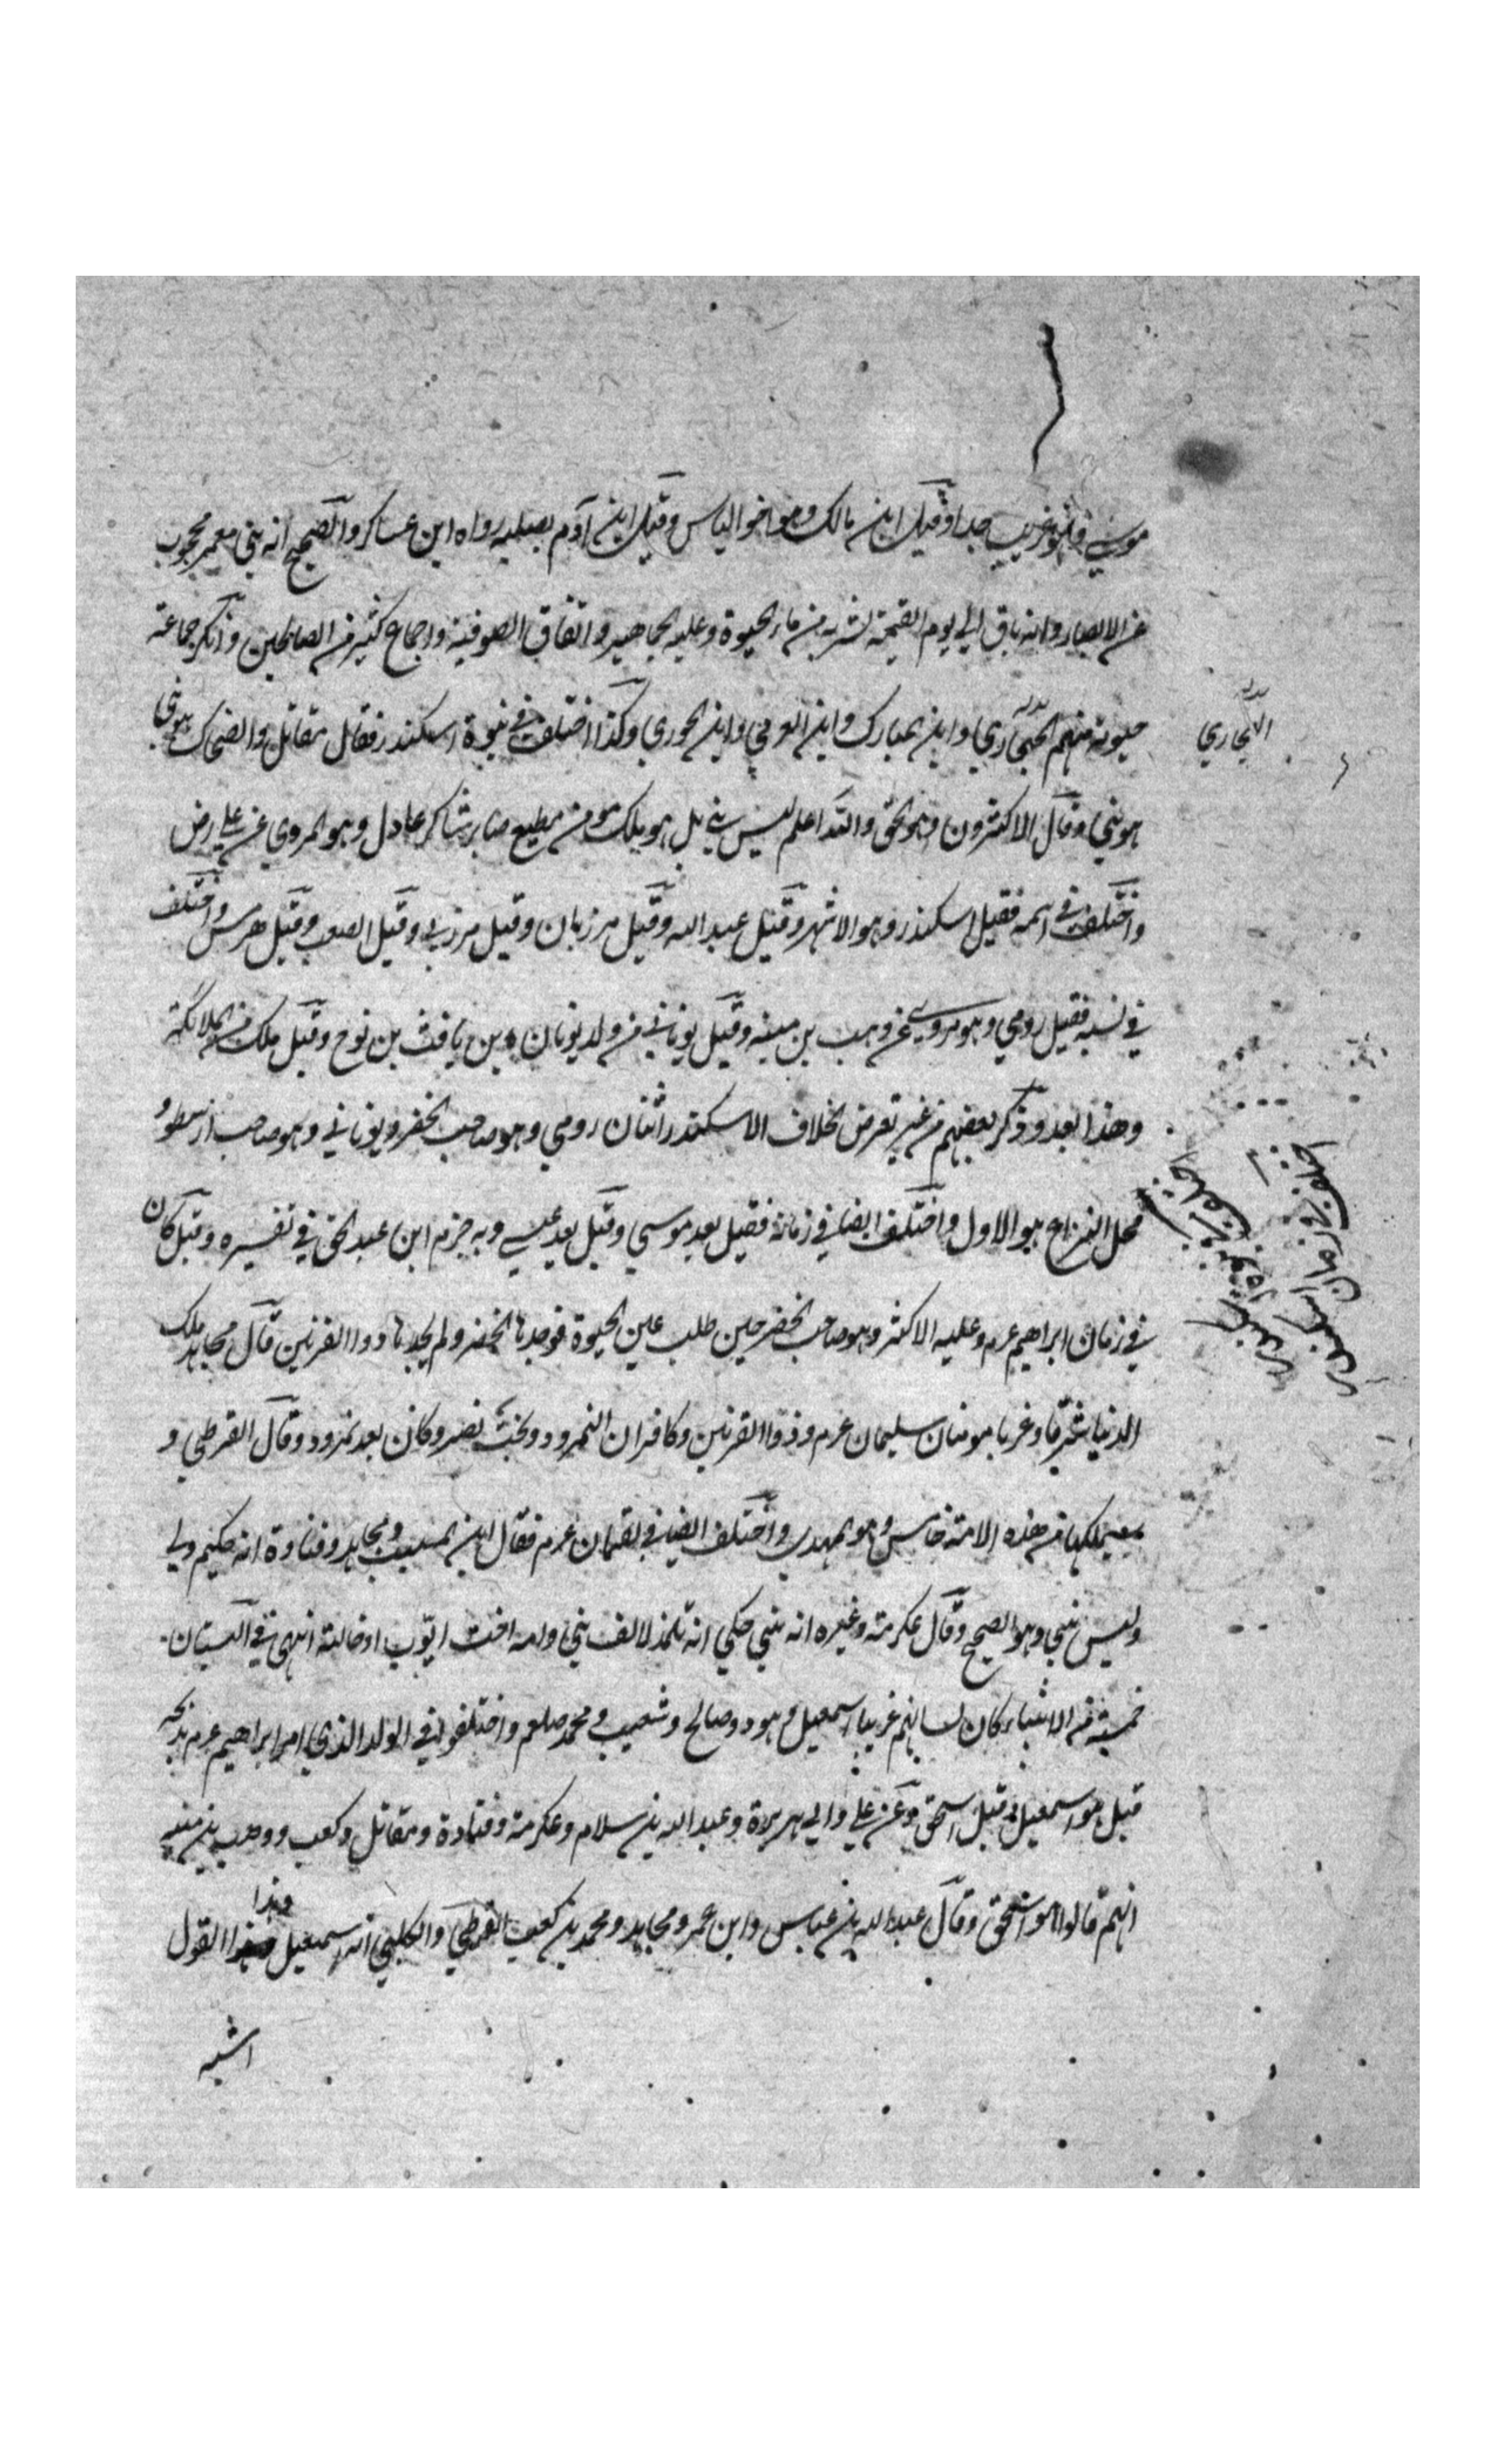 موسي وهو غريب جدا وقيل ابن مالك وهو اخو الياس وقيل ابن آدم بصلبه رواه ابن عساكر والصحيح انه نبي معمر محجوب
عن الابصار وانه باق الي يوم القيمة لشربه من ماء الحيوة وعليه الجماهير واتفاق الصوفية واجماع كثير من الصالحين وانكر جماعة
حيوته منهم البخاري وابن المبارك وابن العربي وابن الجوزي وكذا اختلف في نبوة اسكندر فقال مقاتل والضحاك هو نبي
هو نبي وقال الاكثرون وهو الحق والله اعلم ليس نبي بل هو ملك مومن مطيع صابر شاكر عادل وهو المروي عن علي رض
واختلف في اسمه فقيل اسكندر وهو الاشهر وقيل عبد الله وقيل مرزبان وقيل مرزبي وقيل الصعب وقيل هرمس واختلف
في نسبه فقيل رومي وهو مروي عن وهب بن منبه وقيل يوناني من ولد يونان بن يافث بن نوح وقيل ملك من الملائكة
وهذا ابعد وذكر بعضهم من غير تعرض لخلاف الاسكندر اثنان رومي وهو صاحب الخضر ويوناني وهو صاحب ارسطو و
محل النزاع هو الاول واختلف ايضا في زمانه فقيل بعد موسي وقيل بعد عيسي وبه جزم ابن عبد الحق في تفسيره وقيل كان
في زمان ابراهيم عم وعليه الاكثر وهو صاحب الخضر حين طلب عين الحيوة فوجدها الخضر ولم يجدها ذوا القرنين قال مجاهد ملك
الدنيا شرقا وغربا مومنان سليمان عم وذوا القرنين وكافران النمرود وبخت نصر وكان بعد نمرود وقال القرطبي و
سيملكها من هذه الامة خامس وهو المهدي واختلف ايضا في لقمان عم فقال ابن المسيب ومجاهد وقتادة انه حكيم ولي
وليس نبي وهو الصحيح وقال عكرمة وغيره انه نبي حكي انه تلمذ لالف نبي وامه اخت ايوب او خالته انتهى في البستان
خمسة من الانبياء كان لسانهم عربيا اسمعيل وهود وصالح وشعيب ومحمد صلعم واختلفوا في الولد الذي امر ابراهيم عم بذبحه
قيل هو اسمعيل وقيل اسحق وعن علي وابي هريرة وعبد الله بن سلام وعكرمة وقتادة ومقاتل وكعب ووهب بن منبه
انهم قالوا هو اسحق وقال عبد الله بن عباس وابن عمر ومجاهد ومحمد بن كعب القرظي والكلبي انه اسمعيل وهذا القول
اشبه